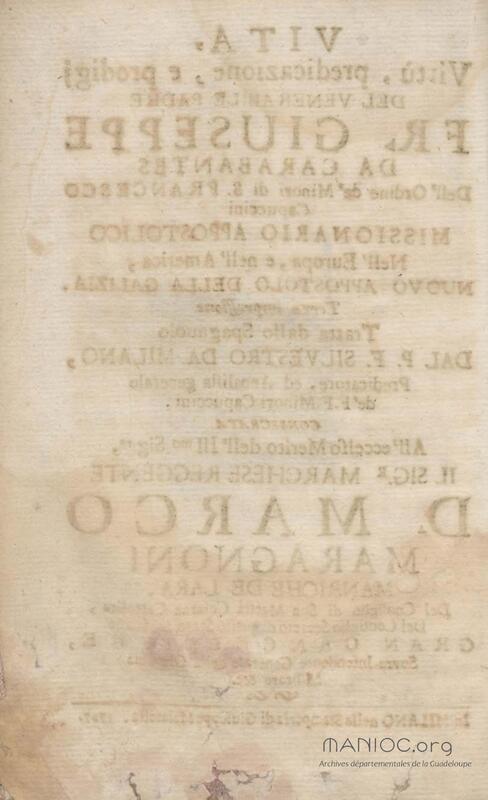 VITA,
Virtù, predicazione, e prodigj
DEL VENERABILE PADRE
FR. GIUSEPPE
DA CARABANTES
Dell'Ordine de' Minori di S. FRANCESCO
Capuccini
MISSIONARIO APPOSTOLICO
Nell'Europa, e nell'America,
NUOVO APPOSTOLO DELLA GALIZIA.
Terza impressione
Tratta dallo Spagnuolo
DAL P. F. SILVESTRO DA MILANO,
Predicatore, ed Annalista generale
de' F F. Minori Capuccini.
CONSECRATA
All'eccelso Merito dell' Ill.mo Sig.re,
IL SIG.R MARCHESE REGGENTE
D. MARCO
MARAGNONI
MANRICHE DE LARA
Del Consiglio di Sua Maestà Cesarea Cattolica,
Del
GRAN CANC
Sovra Intendente Generale
In MILANO nella Stamperia di Giuseppe
MANIOC.org
Archives départementales de la Guadeloupe